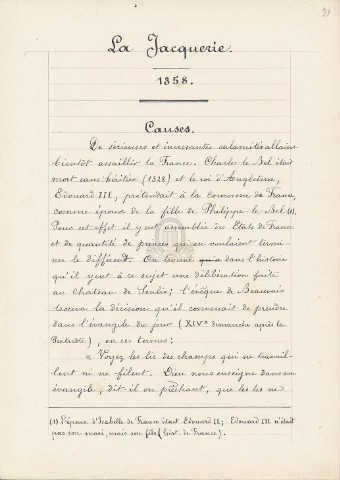 La Jacquerie.
1358.
Causes.
De sérieuses et incessantes calamités allaient
bientôt assaillir la France. Charles le Bel était
mort sans héritier (1328) et le roi d'Angleterre,
Edouard III, prétendait à la couronne de France,
comme époux de la fille de Philippe le Bel (1).
Pour cet effet il y eut assemblée des Etats de France
et de quantité de princes qui en voulaient termi-
ner le différent. On trouve dans l'histoire
qu'il y eut à ce sujet une délibération faite
au Chateau de Senlis ; l'évêque de Beauvais
trouva la décision qu'il convenait de prendre
dans l'évangile du jour (XIVe dimanche après la
Pentecôte), en ces termes :
« Voyez les lis des champs qui ne travail-
lent ni ne filent. Dieu nous enseigne dans son
évangile, dit-il en prêchant, que les lis ne
(1) L'époux d'Isabelle de France était Edouard II ; Edouard III n'était
pas son mari, mais son fils (hist. de France).